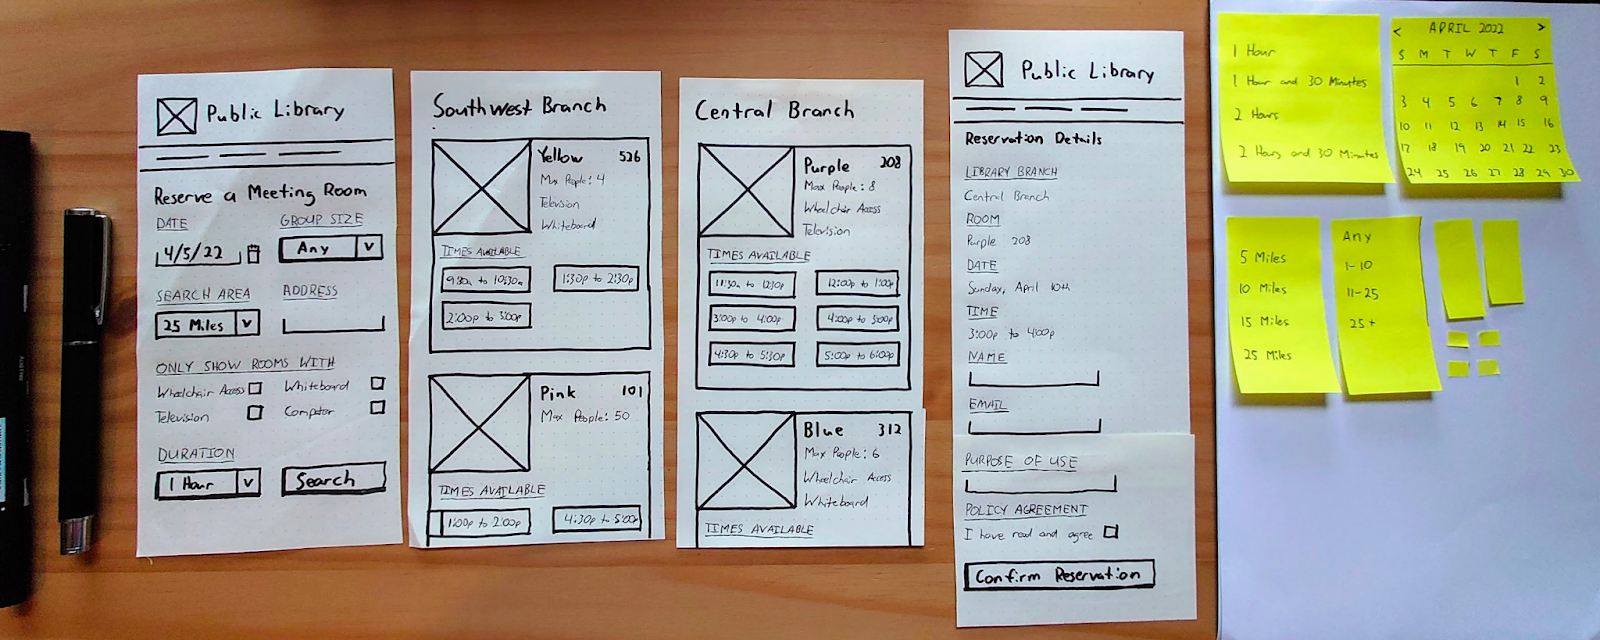 Public Library
Reserve a Meeting Room
DATE
GROUP SIZE
4/5/22
Any
V
SEARCH AREA
ADDRESS
25 Miles
V
ONLY SHOW ROOMS WITH
Wheelchair Access
Whiteboard
Television
Computer
DURATION
1 Hour
V
Search
Southwest Branch
Yellow 526
Max People: 4
Television
Whiteboard
TIMES AVAILABLE
9:30a to 10:30a
1:30p to 2:30p
2:00p to 3:00p
Pink 101
Max People: 50
TIMES AVAILABLE
1:00p to 2:00p
4:30p to 5:00p
Central Branch
Purple 208
Max People: 8
Wheelchair Access
Television
TIMES AVAILABLE
11:30a to 12:30p
12:00p to 1:00p
3:00p to 4:00p
4:00p to 5:00p
4:30p to 5:30p
5:00p to 6:00p
Blue 312
Max People: 6
Wheelchair Access
Whiteboard
TIMES AVAILABLE
Public Library
Reservation Details
LIBRARY BRANCH
Central Branch
ROOM
Purple 208
DATE
Sunday, April 10th
TIME
3:00p to 4:00p
NAME
EMAIL
PURPOSE OF USE
POLICY AGREEMENT
I have read and agree
Confirm Reservation
1 Hour
1 Hour and 30 Minutes
2 Hours
2 Hours and 30 Minutes
< APRIL 2022 >
S M T W T F S
1 2
3 4 5 6 7 8 9
10 11 12 13 14 15 16
17 18 19 20 21 22 23
24 25 26 27 28 29 30
5 Miles
10 Miles
15 Miles
25 Miles
Any
1-10
11-25
25+